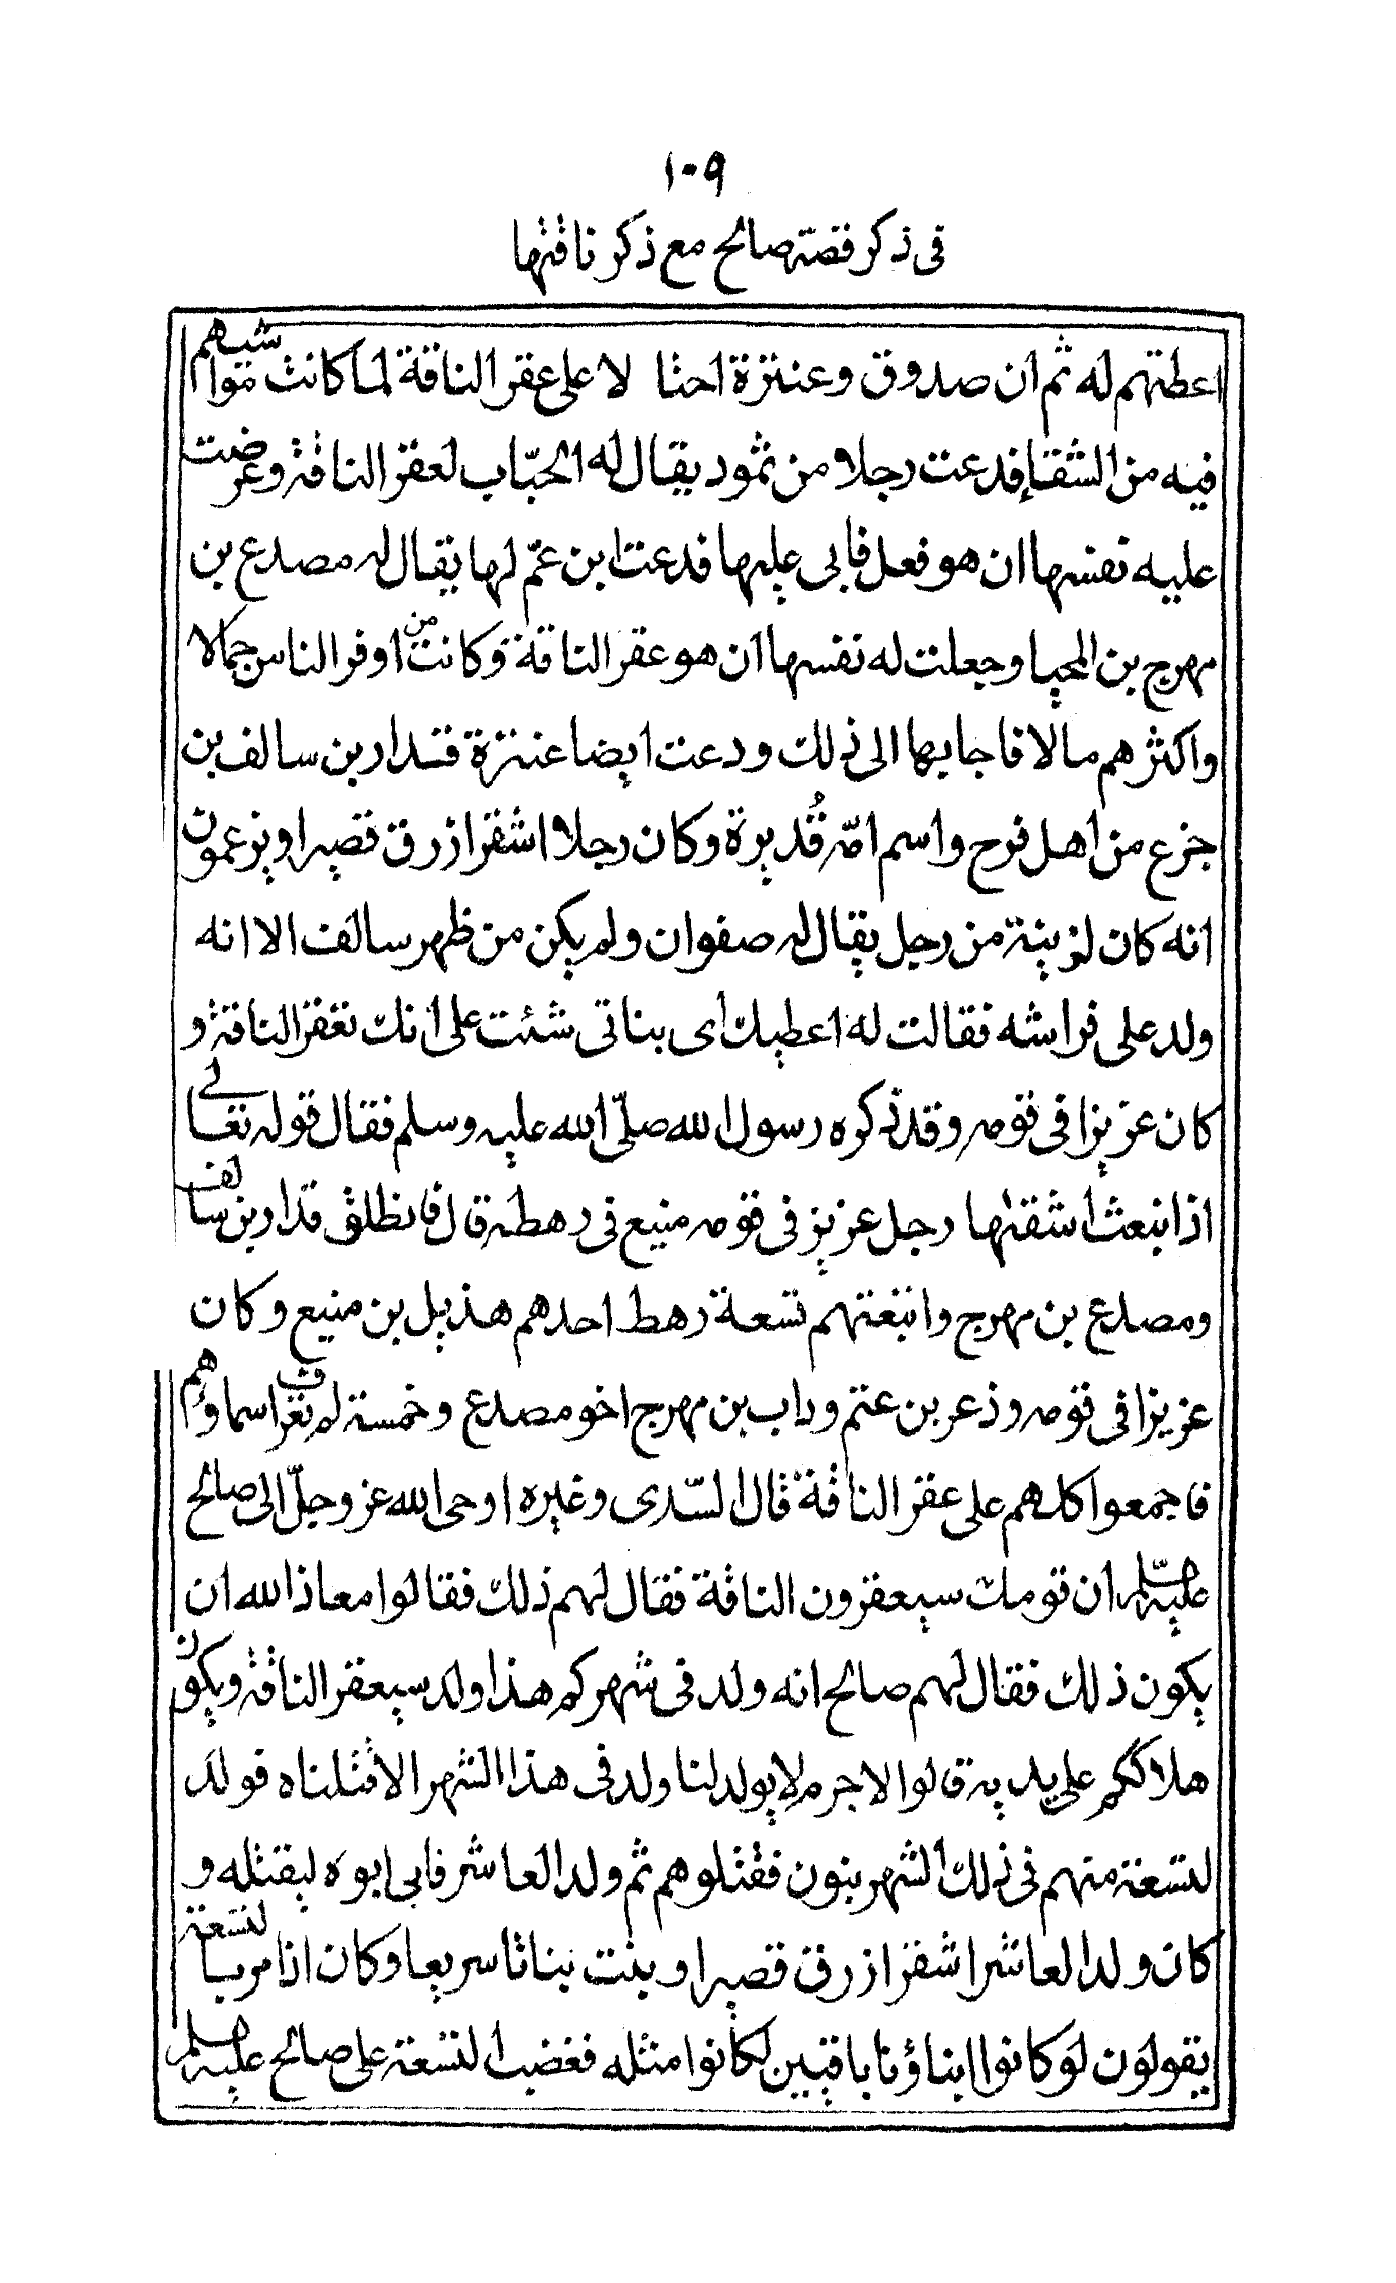 ١٠٩
فی ذکر قصة صالح مع ذکر ناقتها
اعطتهم له ثم ان صدوق وعنتزة احتا لا على عقر الناقة لما كانت مواشيهم
فيه من الشقاء فدعت رجلا من ثمود يقال له الحبّاب لعقر الناقة وعرضت
عليه نفسها ان هو فعل فابى عليها فدعت ابن عمّ لها يقال له مصدع بن
مهرج بن المحيا وجعلت له نفسها ان هو عقر الناقة وكانت من اوفر الناس جمالا
واكثرهم مالا فاجابها الى ذلك ودعت ايضا عنتزة قدار بن سالف بن
جزع من اهل فرح واسم امّه قُديرة وكان رجلا اشقر ازرق قصيرا ويزعمون
انه كان لزينة من رجل يقال له صفوان ولم يكن من ظهر سالف الا انه
ولد على فراشه فقالت له اعطيك اى بناتى شئت على انك تعقر الناقة و
كان عزيزا فى قومه وقد ذكره رسول الله صلّى الله عليه وسلم فقال قوله تعالى
اذا انبعث اشقتها رجل عزيز فى قومه منيع فى رهطه قال فانطلق قدار بن سالف
ومصدع بن مهرج واتبعتهم تسعة رهط احدهم هذيل بن منيع وكان
عزيزا فى قومه وذعر بن عتم وداب بن مهرج اخو مصدع وخمسة لم تعرف اسماؤهم
فاجمعوا كلهم على عقر الناقة قال السّدى وغيره اوحى الله عز وجلّ الى صالح
عليه السلام ان قومك سيعقرون الناقة فقال لهم ذلك فقالوا معاذ الله ان
يكون ذلك فقال لهم صالح انه ولد فى شهركم هذا ولد سيعقر الناقة ويكون
هلاككم على يديه قالوا لاجرم لا يولد لنا ولد فى هذا الشهر الا قتلناه فولد
لتسعة منهم فى ذلك الشهر بنون فقتلوهم ثم ولد العاشر فابى ابوه ليقتله و
كان ولد العاشر اشقر ازرق قصيرا وينت بناتا سريعا وكان اذا مر بالتسعة
يقولون لو كانوا ابناؤنا باقيين لكانوا مثله فغضب التسعة على صالح عليه السلام